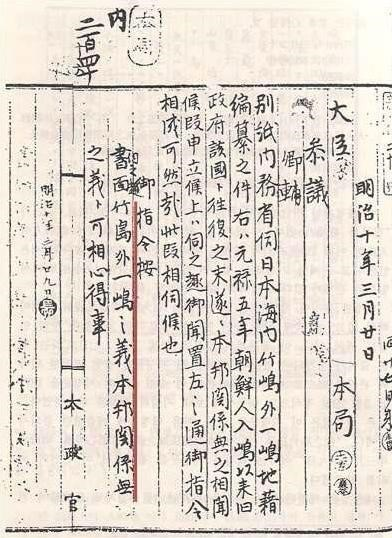 明治十年三月廿日
大臣
本局
参議
卿輔
別紙内務省伺日本海内竹嶋外一嶋地籍
編纂之件右ハ元禄五年朝鮮人入嶋以来旧
政府該国ト往復之末遂ニ本邦関係無之相聞
候段申立候上ハ伺之趣御聞置左之通御指令
相成可然哉此段相伺候也
御指令按
書面竹島外一嶋之義本邦関係無
之義ト可相心得事
明治十年三月廿九日
内